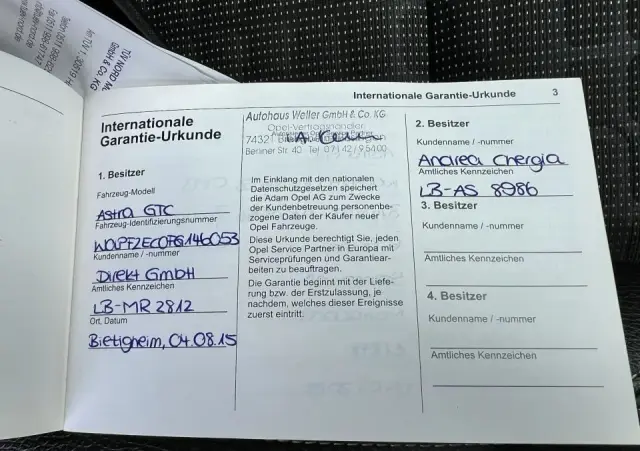 TÜV NORD
GmbH & Co. KG
Internationale Garantie-Urkunde 3
Internationale
Garantie-Urkunde
1. Besitzer
Fahrzeug-Modell
Astra GTC
Fahrzeug-Identifizierungsnummer
W0LPF2EC0FG146053
Kundenname / -nummer
Direkt GmbH
Amtliches Kennzeichen
LB-MR 2812
Ort, Datum
Bietigheim, 04.08.15
Autohaus Weller GmbH & Co. KG
Opel-Vertragshändler
74321
Berliner Str. 40 Tel. 07142/95400
Im Einklang mit den nationalen
Datenschutzgesetzen speichert
die Adam Opel AG zum Zwecke
der Kundenbetreuung personenbe-
zogene Daten der Käufer neuer
Opel Fahrzeuge.
Diese Urkunde berechtigt Sie, jeden
Opel Service Partner in Europa mit
Serviceprüfungen und Garantiear-
beiten zu beauftragen.
Die Garantie beginnt mit der Liefe-
rung bzw. der Erstzulassung, je
nachdem, welches dieser Ereignisse
zuerst eintritt.
2. Besitzer
Kundenname / -nummer
Andrea Chergia
Amtliches Kennzeichen
LB-AS 8986
3. Besitzer
Kundenname / -nummer
Amtliches Kennzeichen
4. Besitzer
Kundenname / -nummer
Amtliches Kennzeichen